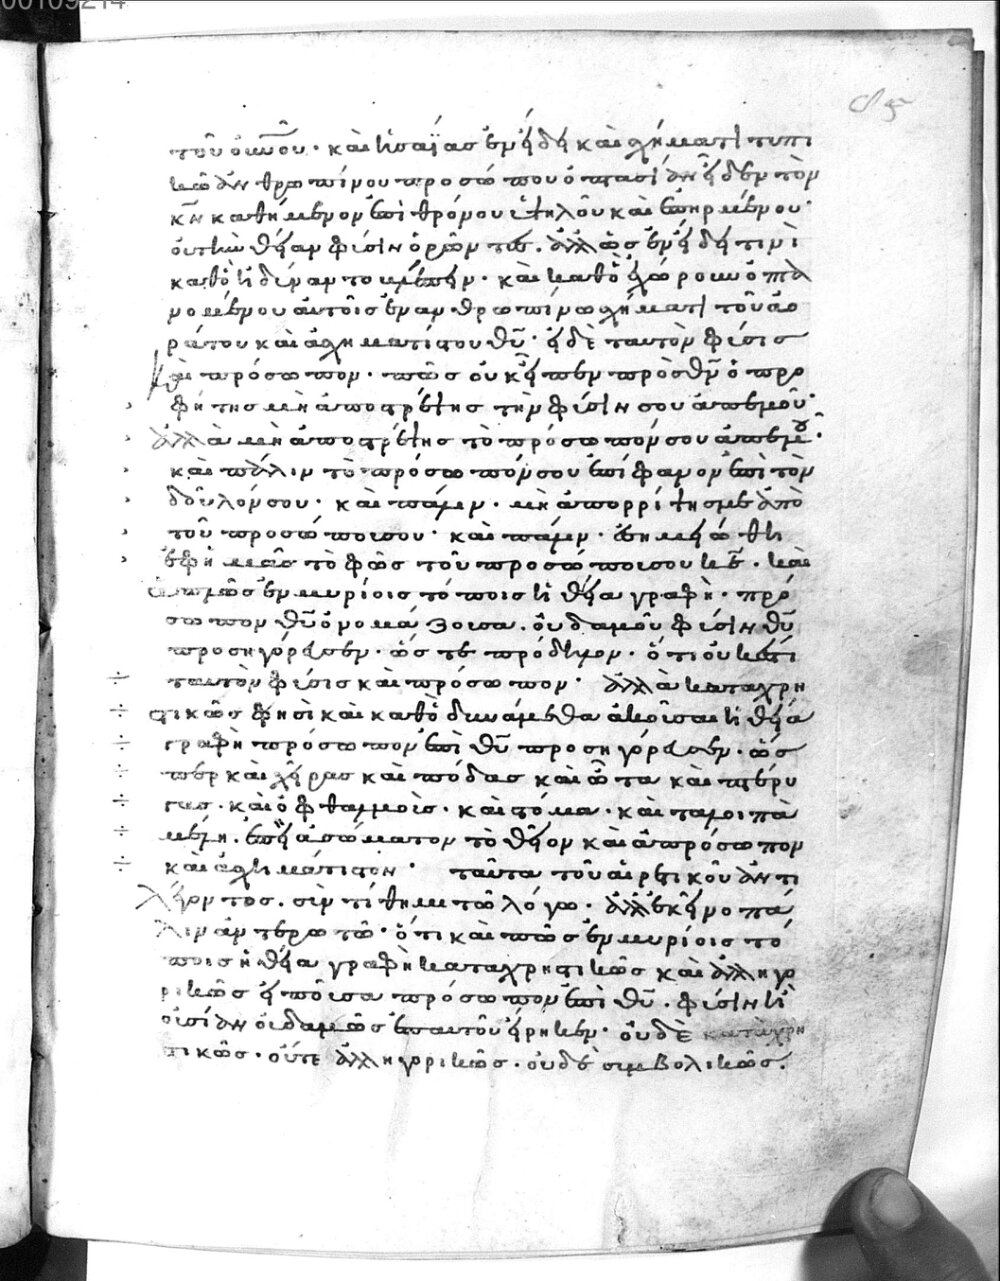 00109214
τοῦ οι̅νο̅υ· καὶ ἡσαΐας ἐν εἴδει καὶ σχήματι τυπι
κῶ ἀνθρωπίνου προσώπου ὀπτασίαν εἶδεν τὸν
κ̅ν̅ καθήμενον ἐπὶ θρόνου ὑψηλοῦ καὶ ἐπηρμένου·
οὔτι τὴν θείαν φύσιν ὁρῶντες. ἀλλ' ὡς ἐν εἴδει τινὶ
καθὸ ἠδύναντο βλέπειν· καὶ καθὸ ἐχώρουν ὀπτα
νομένου αὐτοῖς ἐν ἀνθρωπίνω σχήματι τοῦ ἀο
ράτου καὶ ἀσχηματίστου θ̅υ̅· εἰ δὲ ταυτὸν φύσις
καὶ πρόσωπον· πῶς οὐκ εἶπεν πρὸς θ̅ν̅ ὁ προ
φήτης μὴ ἀποστρέψης τὴν φύσιν σου ἀπ' ἐμοῦ·
ἀλλὰ μὴ ἀποστρέψης τὸ πρόσωπόν σου ἀπ' ἐμοῦ·
καὶ πάλιν τὸ πρόσωπόν σου ἐπίφανον ἐπὶ τὸν
δοῦλόν σου· καὶ πάλιν· μὴ ἀπορρίψης με ἀπὸ
τοῦ προσώπου σου· καὶ πάλιν· ἐσημειώθη
ἐφ' ἡμᾶς τὸ φῶς τοῦ προσώπου σου κ̅ε̅. καὶ
ἁπλῶς ἐν μυρίοις τόποις ἡ θεία γραφὴ· πρό
σωπον θ̅υ̅ ὀνομάζουσα. οὐδαμοῦ φύσιν θ̅υ̅
προσηγόρευσεν· ὥστε πρόδηλον· ὅτι οὐκ ἔστι
ταυτὸν φύσις καὶ πρόσωπον· ἀλλὰ καταχρη
στικῶς φησὶ καὶ καθὸ δυνάμεθα ἀκοῦσαι ἡ θεία
γραφὴ πρόσωπον ἐπὶ θ̅υ̅ προσηγόρευσεν· ὥσ
περ καὶ χεῖρας καὶ πόδας καὶ ὦτα καὶ πτέρυ
γας· καὶ ὀφθαλμοὺς· καὶ στόμα· καὶ τὰ λοιπὰ
μέλη. ἐπεὶ ἀσώματον τὸ θεῖον καὶ ἀπρόσωπον
καὶ ἀσχημάτιστον· ταῦτα τοῦ αἱρετικοῦ ἀντι
λέγοντος. συντίθημι τῶ λόγω· ἀλλ' ἐκεῖνο πά
λιν ἀντερωτῶ· ὅτι καὶ πῶς ἐν μυρίοις τό
ποις ἡ θεία γραφὴ καταχρηστικῶς καὶ ἀλληγο
ρικῶς εἰποῦσα πρόσωπον ἐπὶ θ̅υ̅. φύσιν ἢ
οὐσίαν οὐδαμῶς ἐπ' αὐτοῦ εἴρηκεν· οὐδὲ καταχρη
στικῶς· οὔτε ἀλληγορικῶς· οὐδὲ συμβολικῶς.